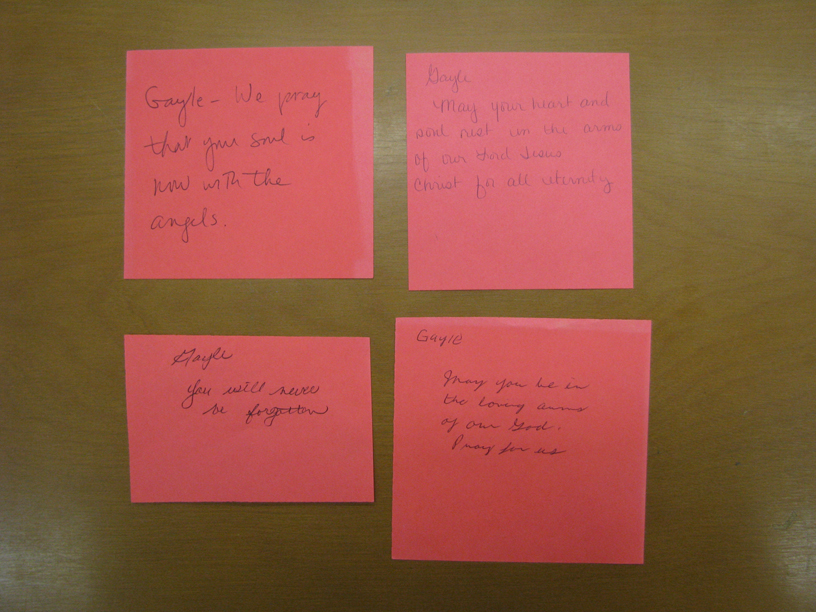 Gayle - We pray
that your soul is
now with the
angels.
Gayle
May your heart and
soul rest in the arms
of our Lord Jesus
Christ for all eternity
Gayle
You will never
be forgotten
Gayle
May you be in
the loving arms
of our God.
Pray for us